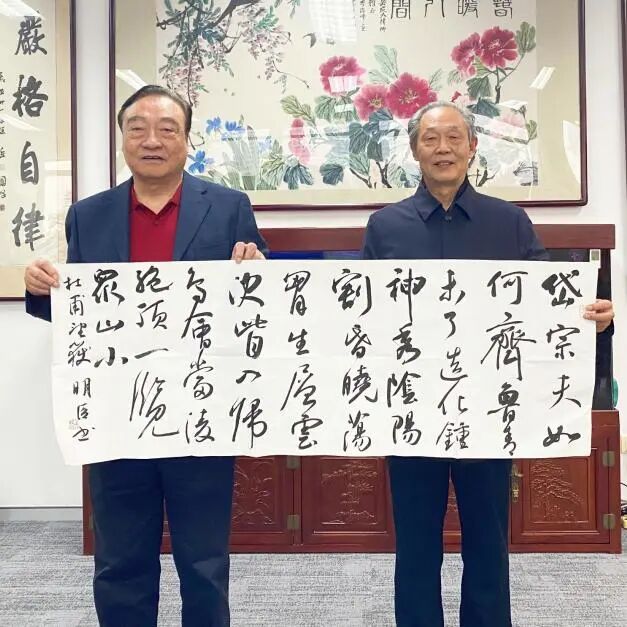 岱宗夫如
何齊魯青
未了造化鍾
神秀陰陽
割昏曉蕩
胷生層雲
決眥入歸
鳥會當凌
絕頂一覽
眾山小
杜甫望嶽 明臣書
嚴格自律